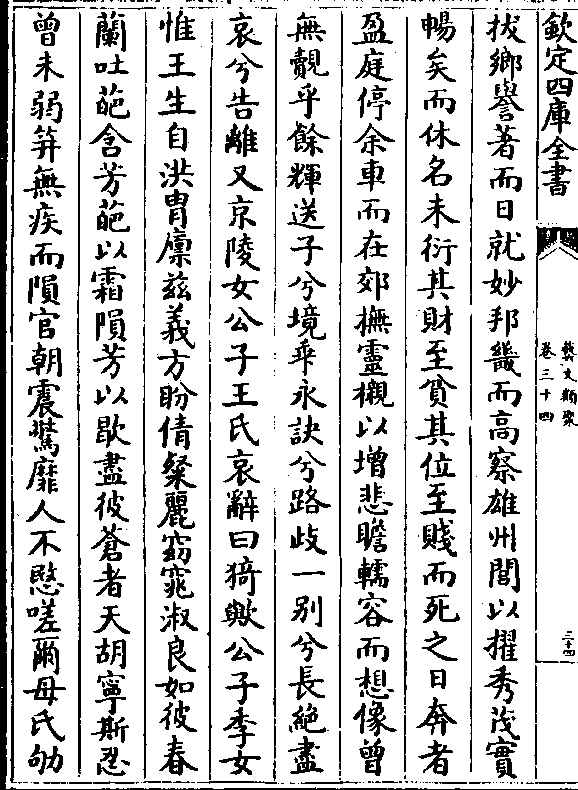 欽定四庫全書
藝文類聚
卷三十四
三十四
拔鄉譽著而日就妙邦畿而高察雄州閭以擢秀茂實
暢矣而休名未衍其財至貧其位至賤而死之日奔者
盈庭停余車而在郊撫靈櫬以增悲瞻轜容而想像曾
無覿乎餘輝送子兮境垂永訣兮路歧一别兮長絶盡
哀兮告離又京陵女公子王氏哀辭曰猗歟公子季女
惟王生自洪胄廪兹義方盼倩粲麗窈窕淑良如彼春
蘭吐葩含芳葩以霜隕芳以歇盡彼蒼者天胡寧斯忍
曾未弱笄無疾而隕官朝震驚靡人不愍嗟爾母氏劬